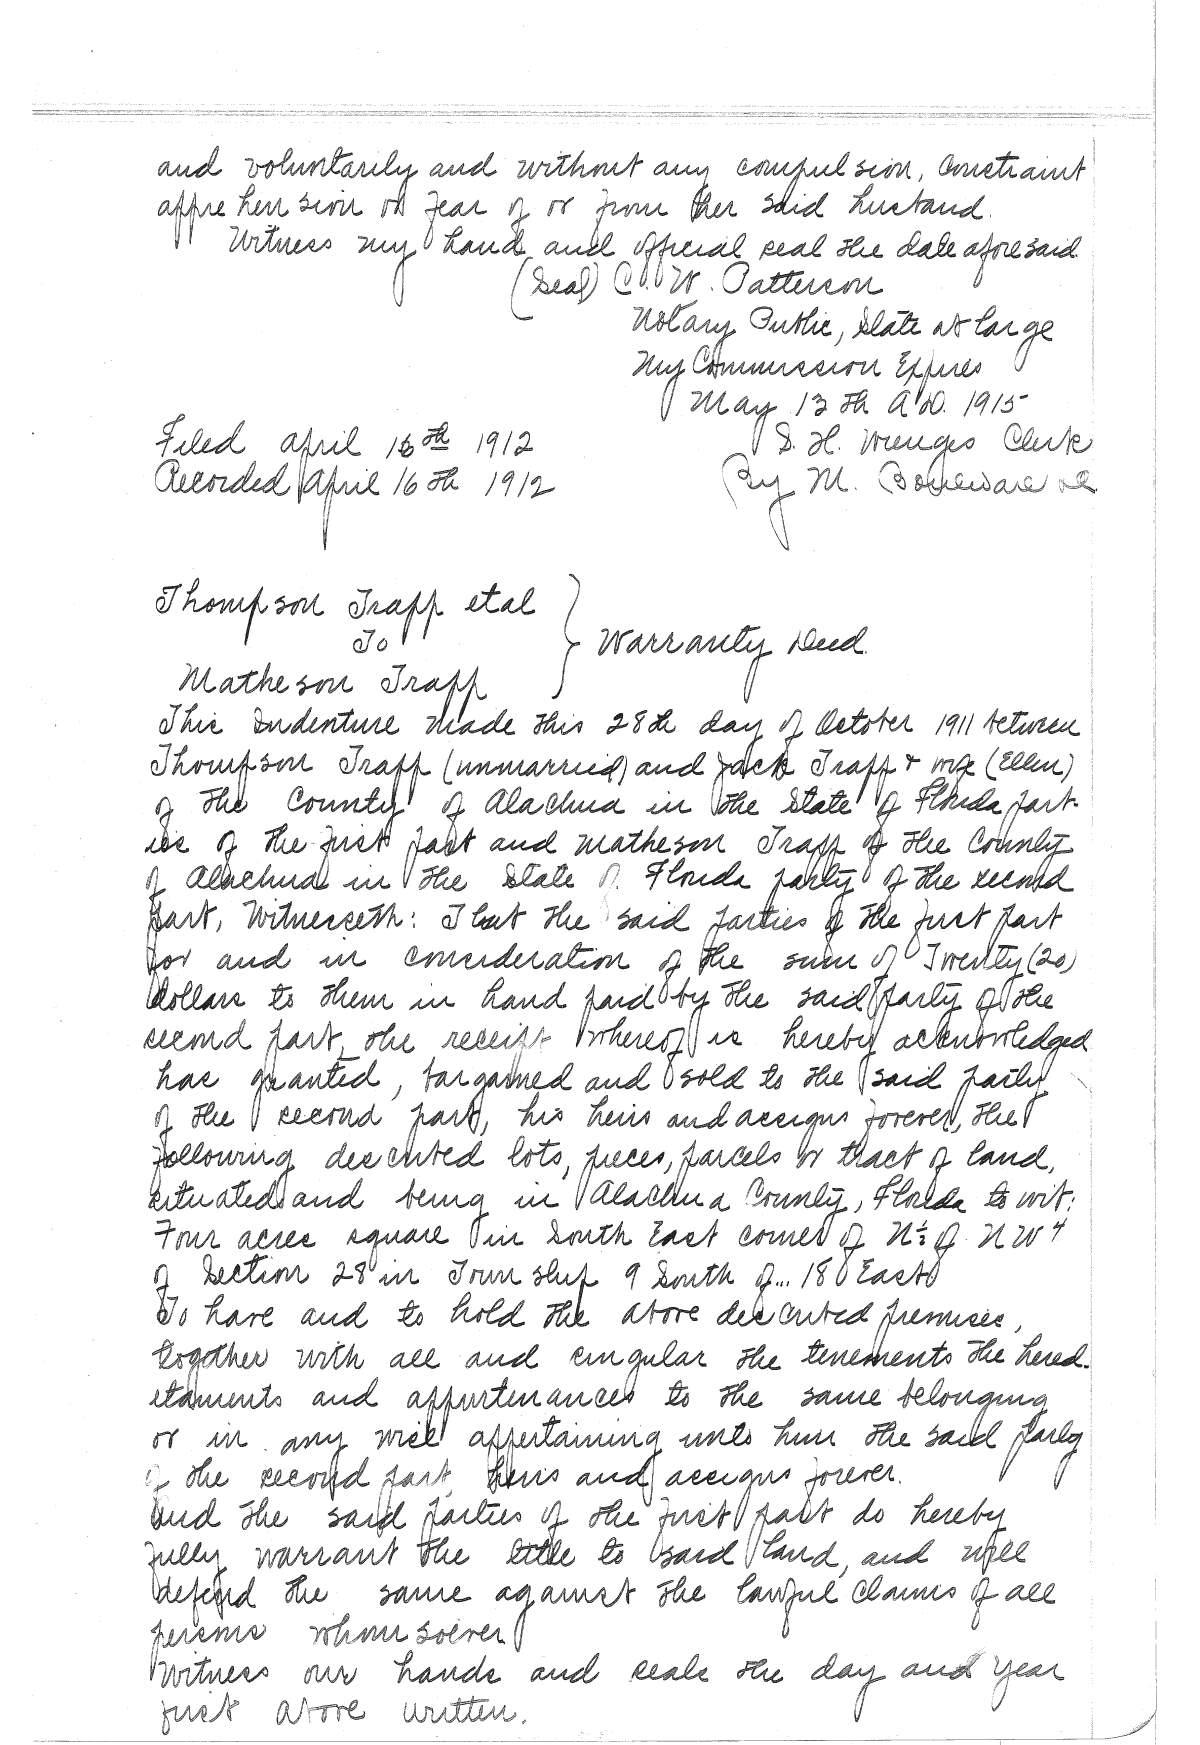 and voluntarily and without any compulsion, Constraint
apprehension or fear of or from her said husband.
Witness my hand and official seal the date aforesaid
(Seal) C. W. Patterson
Notary Public, State at large
My Commission Expires
May 13th A.D. 1915
Filed April 16th 1912
S. H. Wienges Clerk
Recorded April 16th 1912
By M. Bouleware DC
Thompson Trapp et al
To
Warranty Deed.
Matheson Trapp
This Indenture made this 28th day of October 1911 between
Thompson Trapp (unmarried) and Jack Trapp & wife (Ellen)
of the County of Alachua in the State of Florida part-
ies of the first part and Matheson Trapp of the County
of Alachua in the State of Florida party of the second
part, Witnesseth: That the said parties of the first part
for and in consideration of the sum of Twenty (20)
dollars to them in hand paid by the said party of the
second part, the receipt whereof is hereby acknowledged
has granted, bargained and sold to the said party
of the second part, his heirs and assigns forever, the
following described lots, pieces, parcels or tract of land,
situated and being in Alachua County, Florida to wit:
Four acres square in South East corner of N½ of NW4
of Section 28 in Township 9 South of... 18 East
To have and to hold the above described premises,
together with all and singular the tenements the hered-
itaments and appurtenances to the same belonging
or in any wise appertaining unto him the said party
of the second part, heirs and assigns forever.
And the said parties of the first part do hereby
fully warrant the title to said land, and will
defend the same against the lawful claims of all
persons whomsoever
Witness our hands and seals the day and year
first above written.